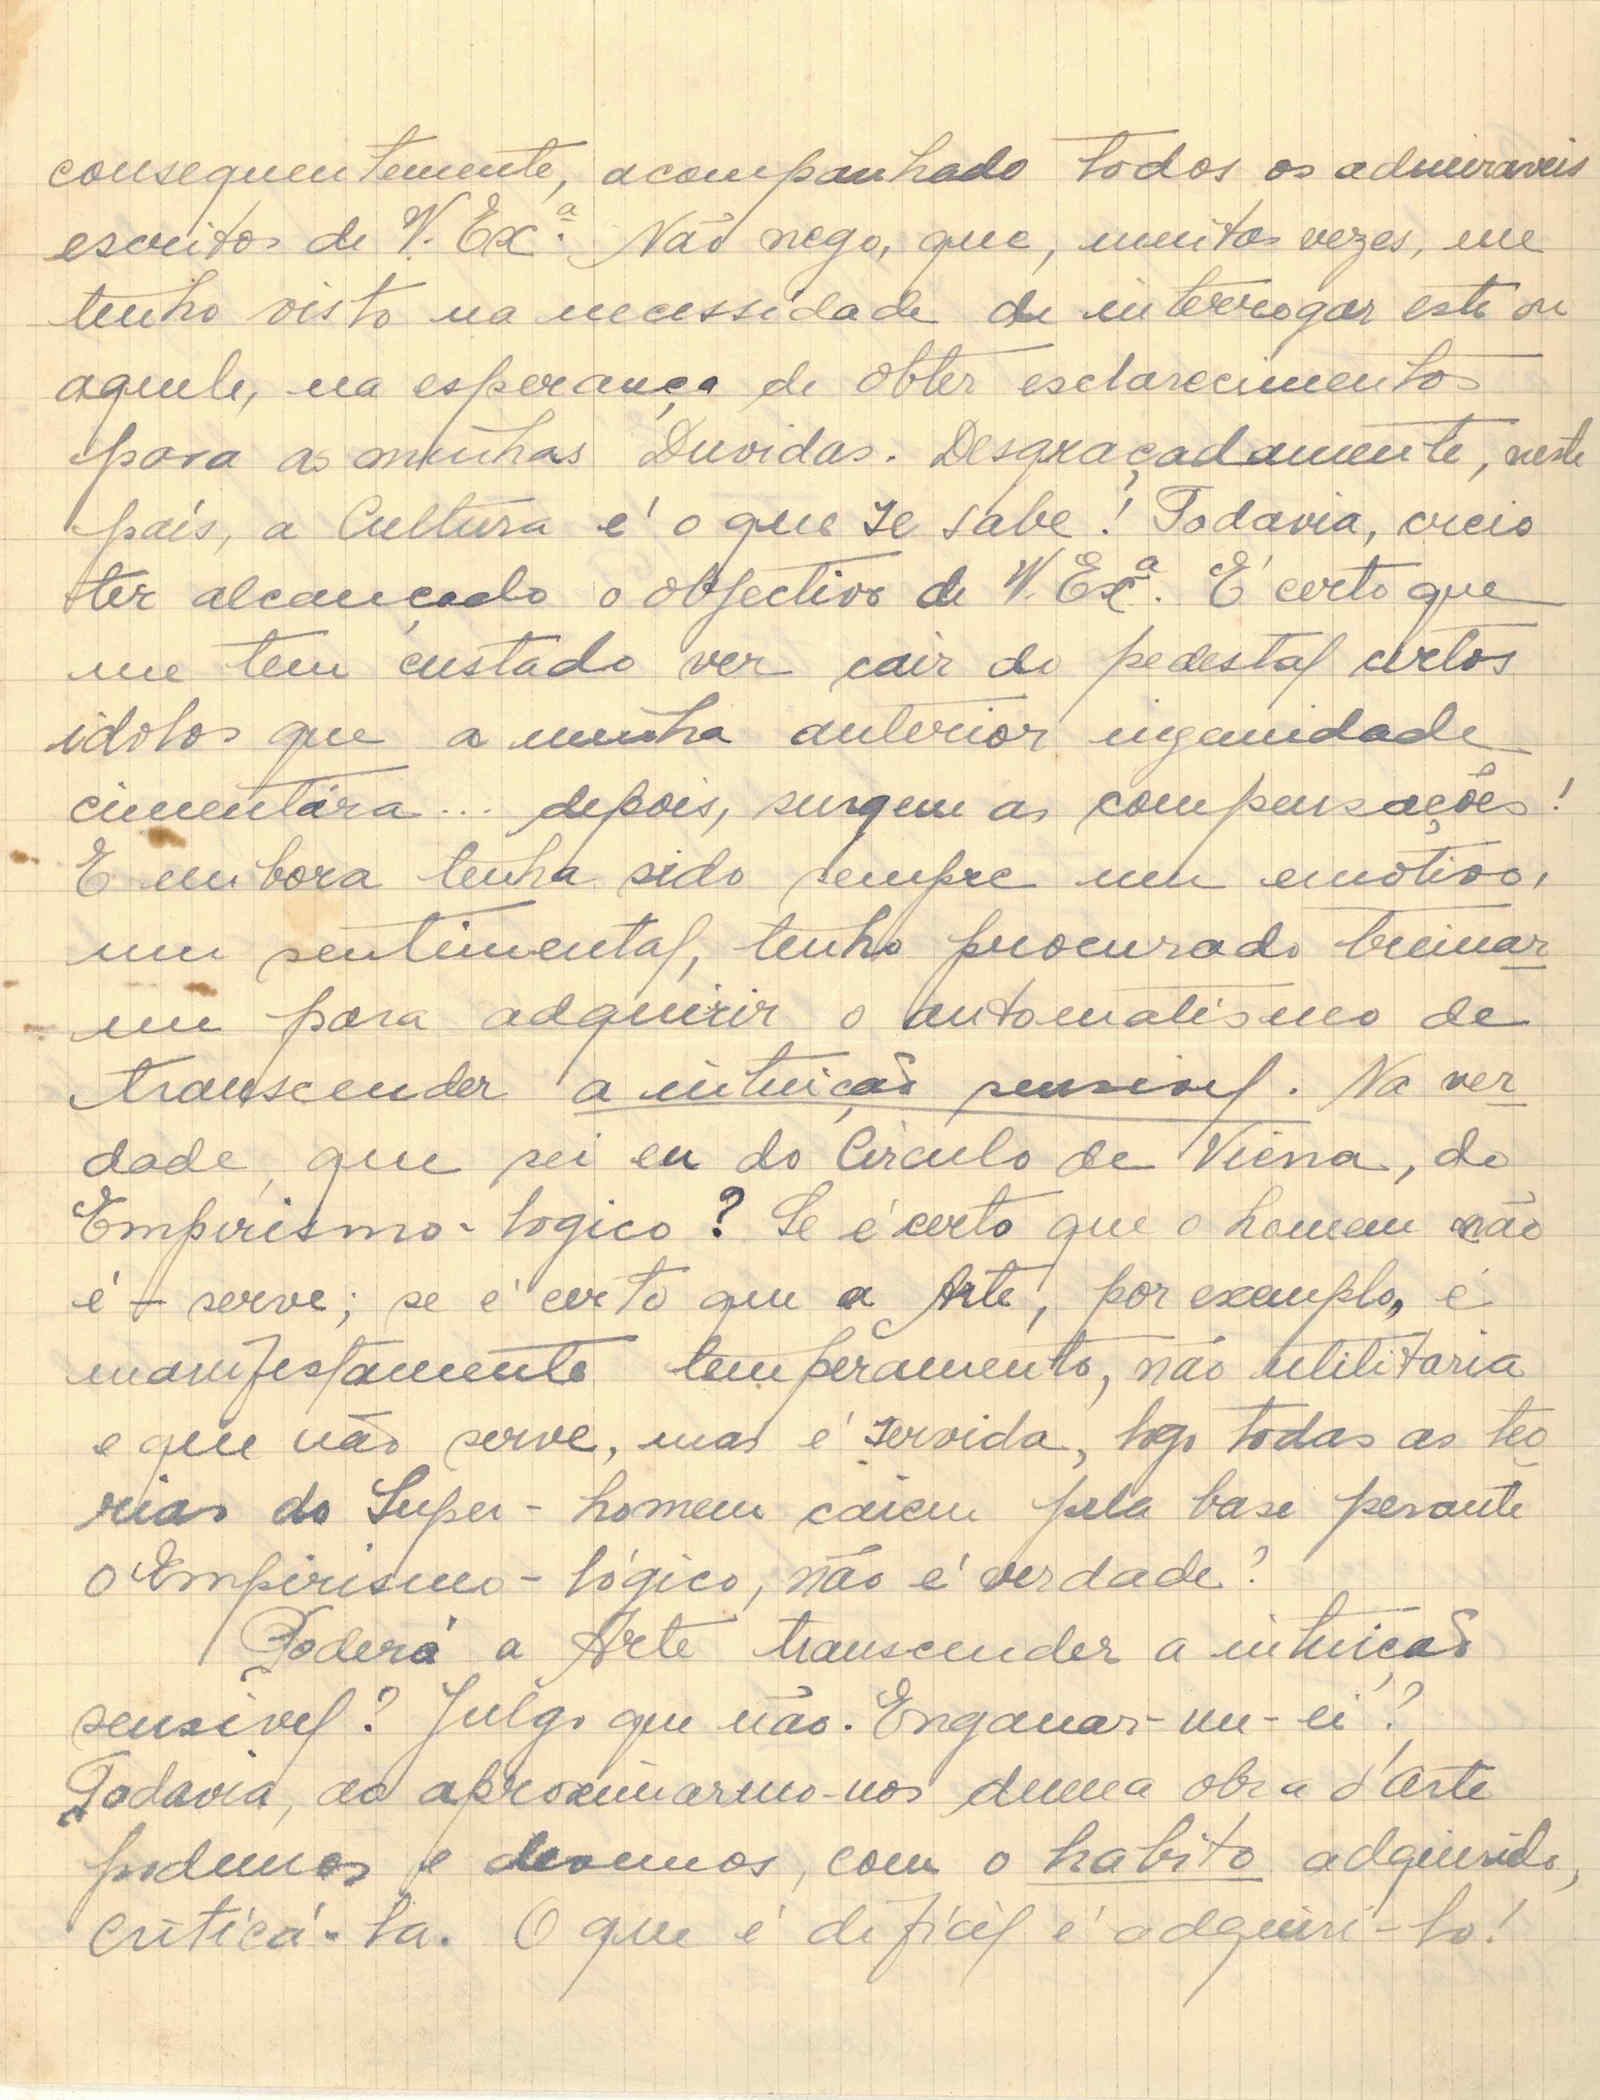 consequentemente, acompanhado todos os admiraveis
escritos de V. Ex.ª Não nego, que, muitas vezes, me
tenho visto na necessidade de interrogar este ou
aquele, na esperança de obter esclarecimentos
para as minhas Duvidas. Desgraçadamente, neste
país, a Cultura é o que se sabe! Todavia, creio
ter alcançado o objectivo de V. Ex.ª. É certo que
me tem custado ver cair do pedestal certos
idolos que a minha anterior ingenuidade
cimentára... depois, surgem as compensações!
E embora tenha sido sempre um emotivo,
um sentimental, tenho procurado treinar
me para adquirir o automatismo de
transcender a intuição sensivel. Na ver
dade, que sei eu do Circulo de Viena, do
Empirismo-logico? Se é certo que o homem não
é - serve; se é certo que a Arte, por exemplo, é
manifestamente temperamento, não utilitaria
e que não serve, mas é servida, logo todas as teo
rias do Super-homem cáiem pela base perante
o Empirismo-lógico, não é verdade?
Poderá a Arte transcender a intuição
sensivel? Julgo que não. Enganar-me-ei?
Todavia, ao aproximarmo-nos duma obra d'arte
podemos e devemos, com o habito adquirido,
criticá-la. O que é difícil é adquiri-lo!